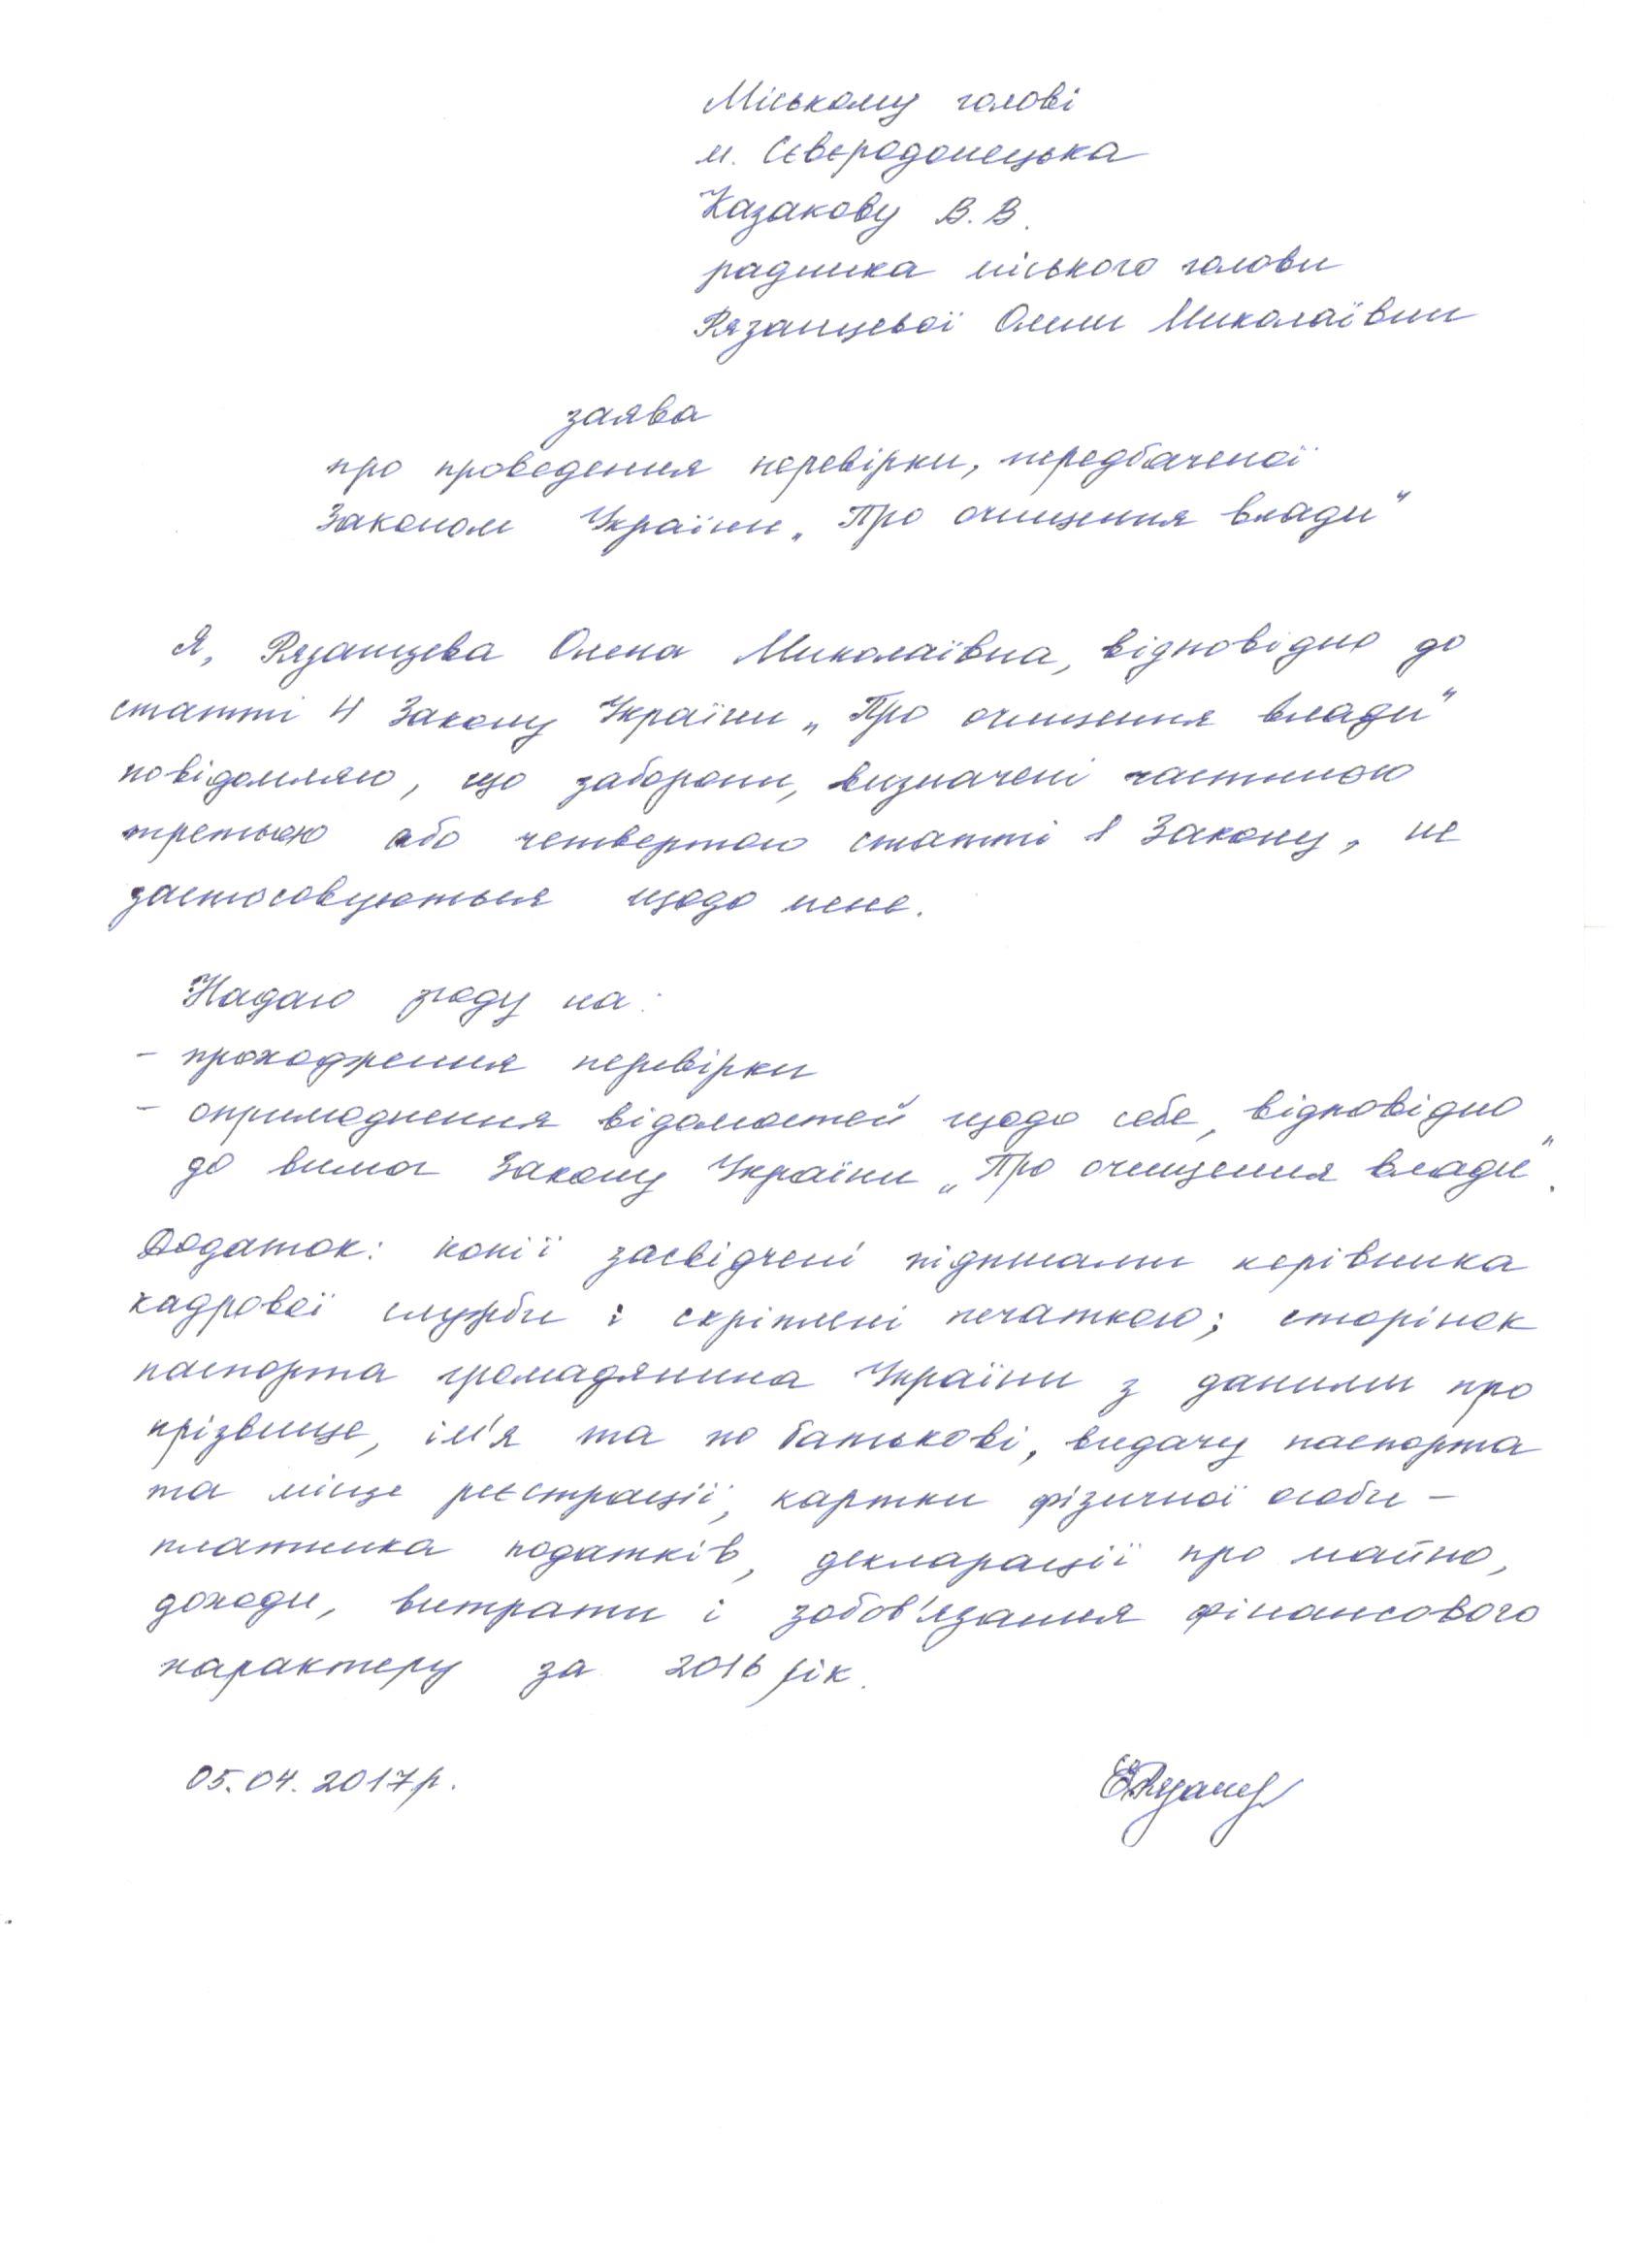 Міському голові
м. Сєвєродонецька
Казакову В.В.
радника міського голови
Рязанцевої Олени Миколаївни
заява
про проведення перевірки, передбаченої
Законом України „Про очищення влади"
Я, Рязанцева Олена Миколаївна, відповідно до
статті 4 Закону України „Про очищення влади"
повідомляю, що заборони, визначені частиною
третьою або четвертою статті 1 Закону, не
застосовуються щодо мене.
Надаю згоду на:
- проходження перевірки
- оприлюднення відомостей щодо себе, відповідно
до вимог Закону України „Про очищення влади".
Додаток: копії засвідчені підписами керівника
кадрової служби і скріплені печаткою; сторінок
паспорта громадянина України з даними про
прізвище, ім'я та по батькові, видачу паспорта
та місце реєстрації, картки фізичної особи -
платника податків, декларації про майно,
доходи, витрати і зобов'язання фінансового
характеру за 2016 рік.
05.04.2017р.